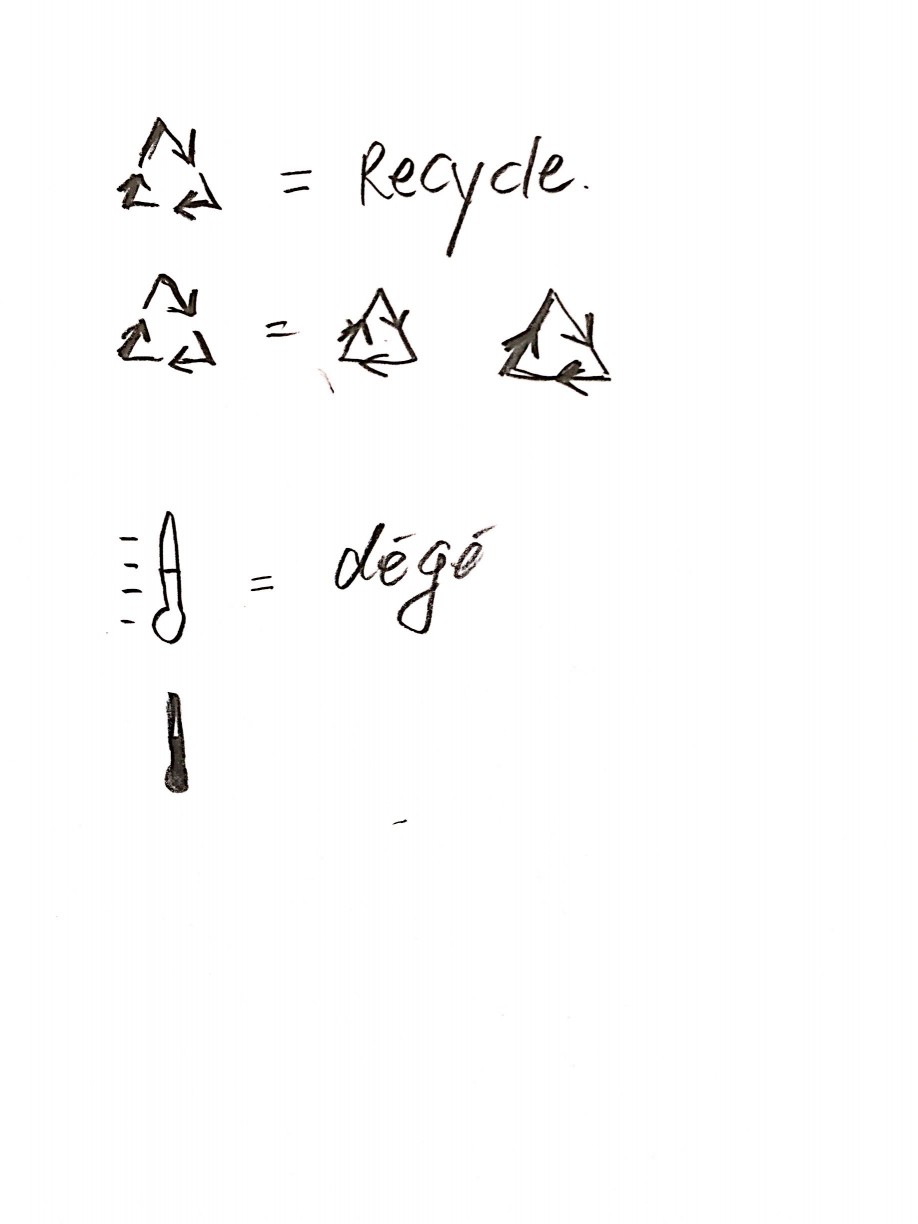 = Recycle.
=
= dégé